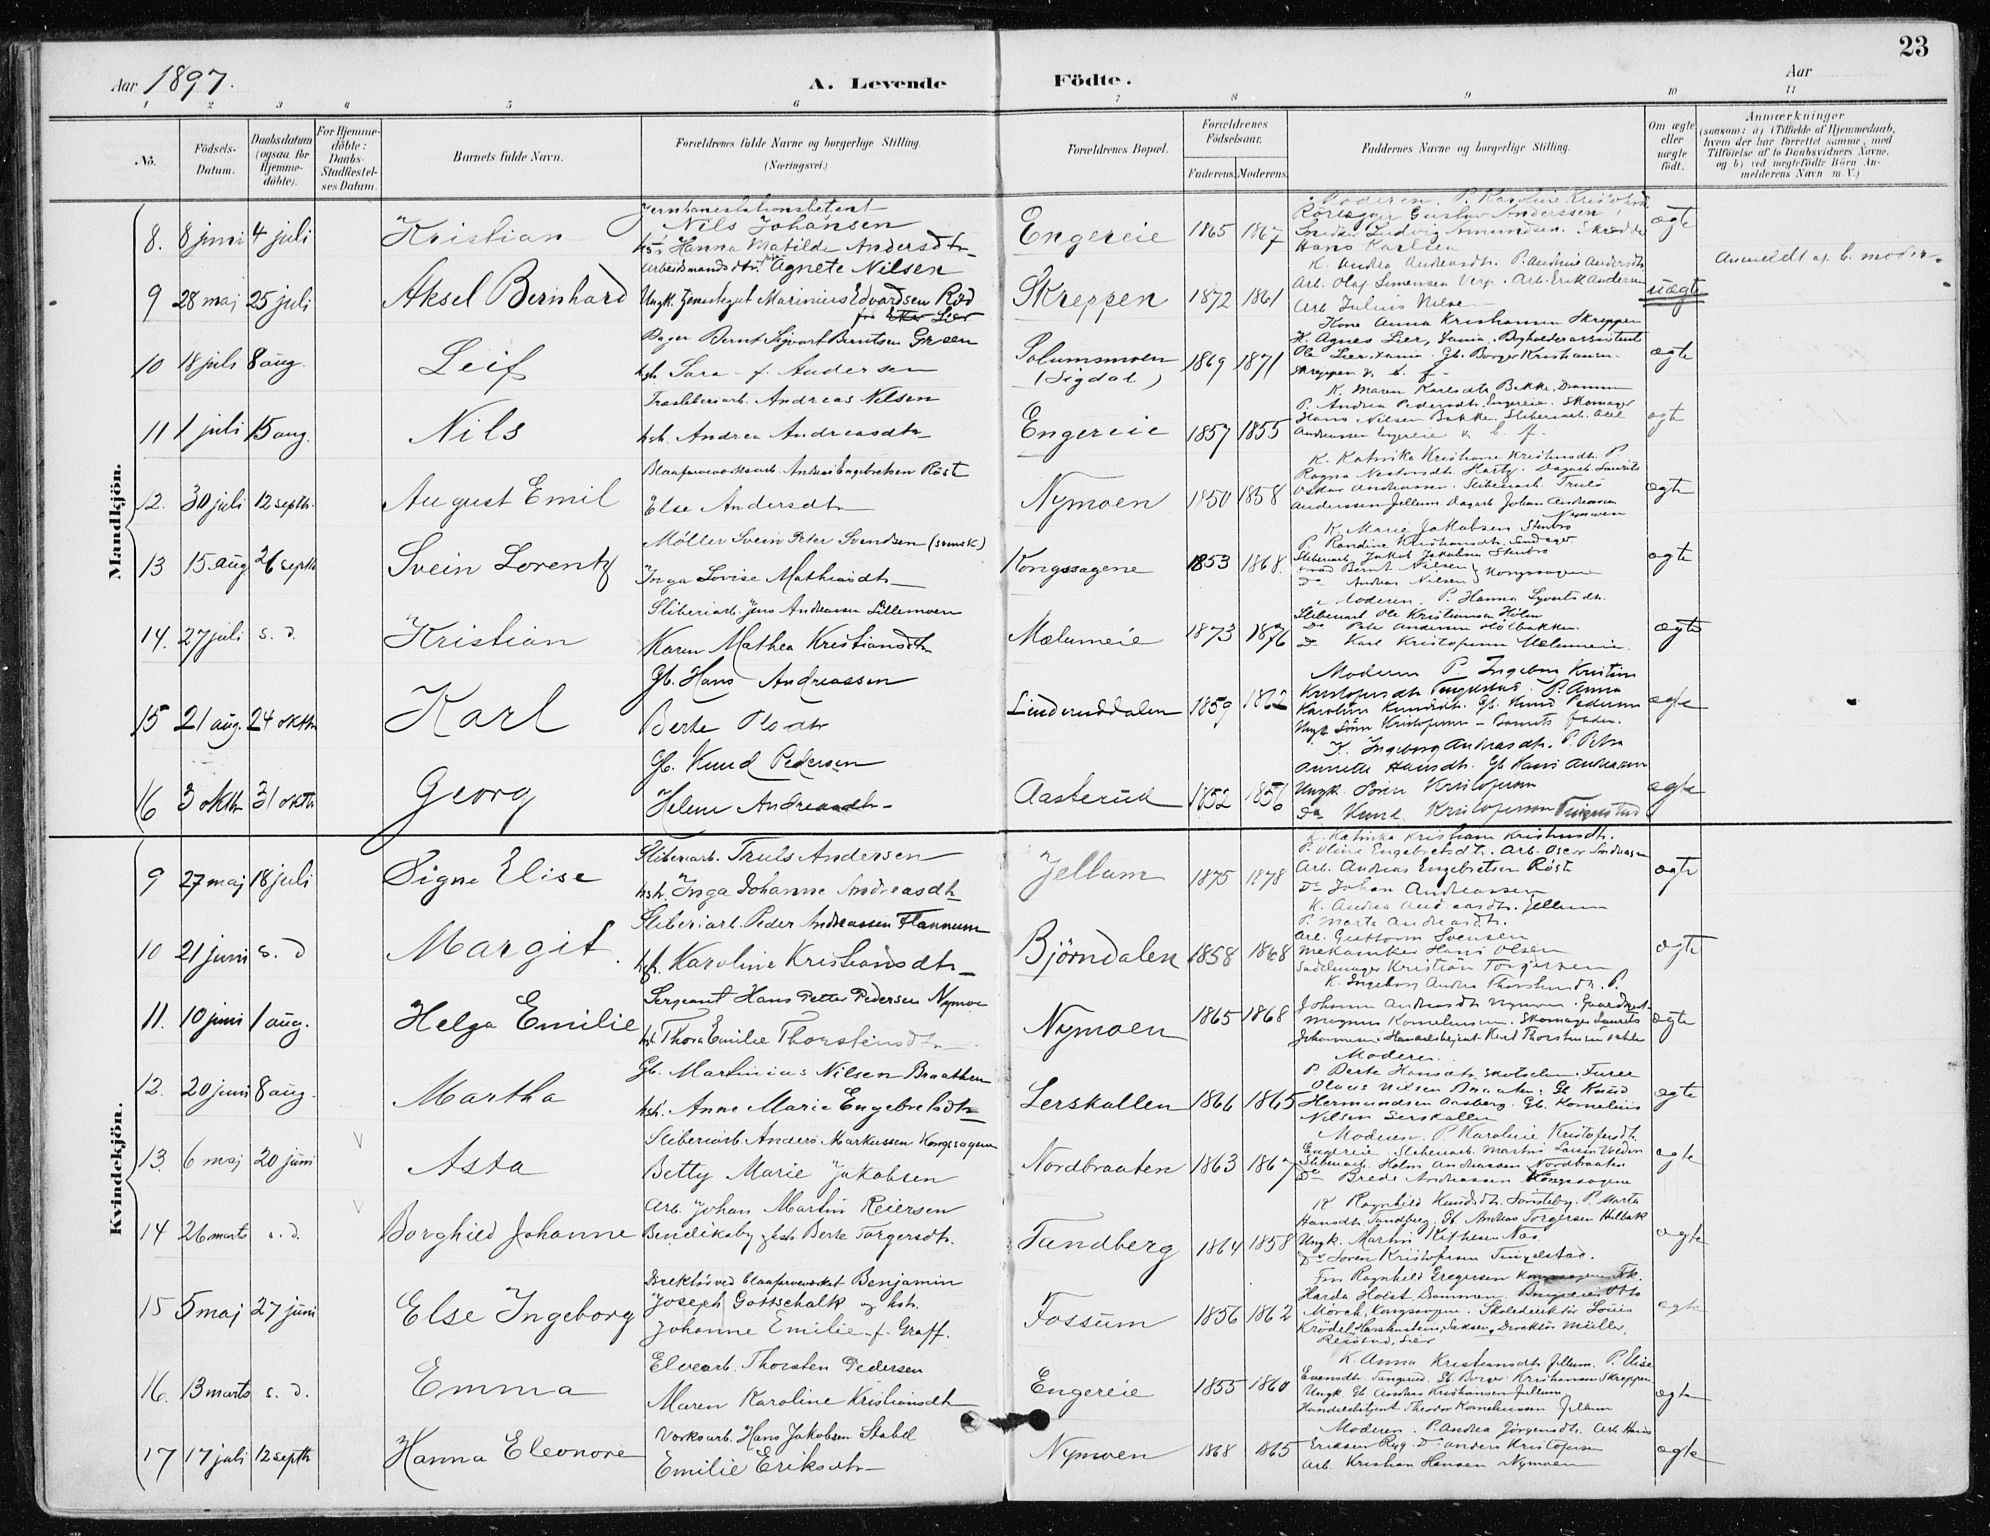 23
Aar 1897. A. Levende Födte. Aar
1 2 3 4 5 6 7 8 9 10 11
No. Födsels-Datum. Daabsdatum (ogsaa for Hjemme-döbte). For Hjemme-döbte: Daabs-Stadfæstel-ses Datum. Barnets fulde Navn. Forældrenes fulde Navne og borgerlige Stilling. (Næringsvei.) Forældrenes Bopæl. Forældrenes Födselsaar. Faderens. Moderens. Faddernes Navne og borgerlige Stilling. Om ægte eller uægte födt. Anmærkninger (saasom: a) i Tilfælde af Hjemmedaab, hvem der har forrettet samme, med Tilföielse af to Daabsvidners Navne. og b) ved uægtefödte Börn An-melderens Navn m. V.)
Mandkjön.
8. 8 juni 4 juli Kristian
Nils Johansen
Hanna Matilde Andersdtr
Engereie 1865 1867
Moderen. P. Karoline
Gustav Anderssen
Ludvig Amundsen.
Hans Karlsen
ægte
9 28 maj 25 juli Aksel Bernhard
Arbeidsmandsdtr. Agnete Nilsen
Ungk. Marinius Edvardsen Rød
Skreppen 1872 1861
K. Andrea Andreasdtr.
Arb. Olaf Simensen Arb. Erik Andersen
Arb. Julius Nilsen
uægte
Anmeldt af b. moder.
10 18 juli 8 aug. Leif
Bager Bernt Sigvart Berntsen Green
Sara f. Andersen
Solumsmoen (Sigdal) 1869 1871
Kone Anna Kristiansen Skreppen
K. Agnes Lier, Bogholderassistent
Ole Lier, Gb. Borger Kristiansen
Skreppen & b. f.
ægte
11 1 juli 15 aug. Nils
Træsliberiarb. Andreas Nilsen
hst. Andrea Andreasdtr
Engereie 1857 1855
K. Maren Karlsdtr Bakke,
P. Andrea Pedersdtr. Engereie. Skomager
Hans Nilsen Bakke. Sliberiarb. Axel
Andreassen Engereie & b. f.
ægte
12. 30 juli 12 septbr. August Emil
Blaafarveværksarb. Andreas Engebretsen Röst
Else Andersdtr
Nymoen 1850 1858
K. Katrika Kristiane Kristiansdtr. P.
Oskar Andreassen. Sliberiarb. Truls
Anderssen Jellum Dagarb. Johan Andreassen
Nymoen
ægte
13 15 aug 26 septbr Svein Lorentz
Möller Svein Peter Svendsen (svensk)
Inga Lovise Mathiasdtr
Kongssagene 1853 1868.
K. Marie Jakobsen Stenbro
P. Randine Kristiansdtr.
Sliberiarb. Jakob Jakobsen Stenbro
Bernt Nilsen
Do Andreas Nilsen Kongssagene
ægte
14. 27 juli s. d. Kristian
Sliberiarb. Jens Andreassen Lillemoen
Karen Mathea Kristiansdtr
Mælumeie 1873 1876
Moderen. P. Hanna Syvertsdtr.
Sliberiarb Ole Kristiansen Holm
Do Peter Andersen Holbakken.
Do Karl Kristofersen Mælumeie.
ægte
15 21 aug. 24 oktbr Karl
Gb. Hans Andreassen
Berte Olsdtr
Linderuddalen 1859 1862
Moderen P. Ingeborg Kristine
Kristofersdtr Tingelstad. P. Anna
Karoline Knudsdtr. Gb. Knud Pedersen
Ungk Sören Kristofersen – Barnets fader.
ægte
16 3 oktbr 31 oktbr Georg
Gb. Knud Pedersen
Helene Andreasdtr
Aasterud 1852 1856
K. Ingeborg Andreasdtr. P. Petra
Annette Hansdtr. Gb Hans Andreassen
Ungk. Sören Kristofersen
Do Knud Kristofersen Tingelstad
ægte
Kvindekjön.
9 27 maj 18 juli Signe Elise
Sliberiarb. Truls Andersen
hst. Inga Johanne Andreasdtr
Jellum 1875 1878
K. Katrika Kristiane Kristiansdtr.
P. Oline Engebretsdtr. Arb. Oscar Andreassen
Arb. Andreas Engebretsen Röste
Do Johan Andreassen
ægte
10 21 juni s. d Margit.
Sliberiarb. Peder Andreassen Flannum
hst. Karoline Kristiansdtr
Björndalen 1858 1868
K. Andrea Andreasdtr. Jellum
P. Marta Andreasdtr.
Arb. Guttorm Svensen
Mekaniker Hans Olsen
Sadelmager Kristian Torgersen
ægte
11. 10 juni 1 aug. Helga Emilie
Sergeant Hans Petter Pedersen Nymoen
hst Thora Emilie Thorstensdtr
Nymoen 1865 1868
K. Ingeborg Andrea Thorstensdtr. P.
Johanne Andreasdtr Nymoen.
Magnus Korneliussen. Skomager Laurits
Johannessen Handelsbetjent Karl Thorstensen
ægte
12. 20 juni 8 aug. Martha
Gb. Martinius Nilsen Braathen
hst. Anne Marie Engebretsdtr
Lerskallen 1866 1865
Moderen.
P. Berte Hansdtr Skotselv.
Olaus Nilsen Braaten. Gb Knud
Hermundsen Aasberg. Gb. Kornelius
Nilsen Lerskallen
ægte
13. 6 maj 20 juni V Asta
Sliberiarb. Anders Markussen Kongssagene
Betty Marie Jakobsen
Nordbraaten 1863 1867
Moderen. P. Karoline Kristofersdtr.
Engereie. Sliberiarb. Martin Larsen
Sliberiarb. Holm Andreassen Nordbraaten
Do Brede Andreassen Kongssagene
ægte
14 26 marts s. d. V Borghild Johanne
Arb. Johan Martin Reiersen
Bendiksby & hst. Berte Torgersdtr.
Tandberg 1864 1858
K Ragnhild Knudsdtr. Sönsteby. P. Marta
Hansdtr. Tandberg. Gb. Andreas Torgersen Holbæk
Ungk. Martin
Do Soren Kristofersen Tingelstad.
ægte
15 5 maj 27 juni Else Ingeborg
Direktör ved Blaafarveværket Benjamin
Joseph Gottschalk og hst.
Johanne Emilie f. Graff.
Fossum 1856 1862
Fru Ragnhild Gregersen Kongssagene Frk.
Harda Hoist, Drammen. Otto
Mörch, Kongssagene. Skoledirektör Louis
Krödel, Sachsen, Direktör Müller,
ægte
16. 13 marts s. d. Emma
Elvearb. Thorsten Pedersen
Maren Karoline Kristiansdtr
Engereie 1855 1860
K. Anna Kristiansdtr Jellum. P. Elise
Evensdtr. Gb Borger Kristiansen Skreppen
Ungk. Gb Andreas Kristiansen Jellum
Handelsbetjent Theodor Korneliussen Jellum
ægte
17 17 juli 12 septbr Hanna Eleonore
Værksarb. Hans Jakobsen Stabel
Emilie Eriksdtr
Nymoen 1868 1865
Moderen. P. Andrea Jörgensdtr. Arb Hans
Eriksen Do Anders Kristofersen
Arb. Kristian Hansen Nymoen
ægte